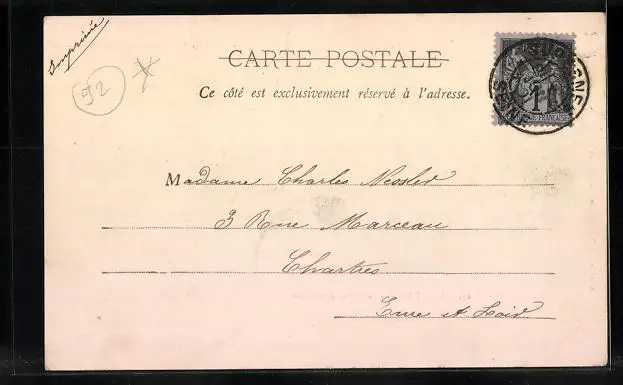 Imprimé
92
CARTE POSTALE
Ce côté est exclusivement réservé à l'adresse.
Madame Charles Nessler
3 Rue Marceau
Chartres
Eure et Loir